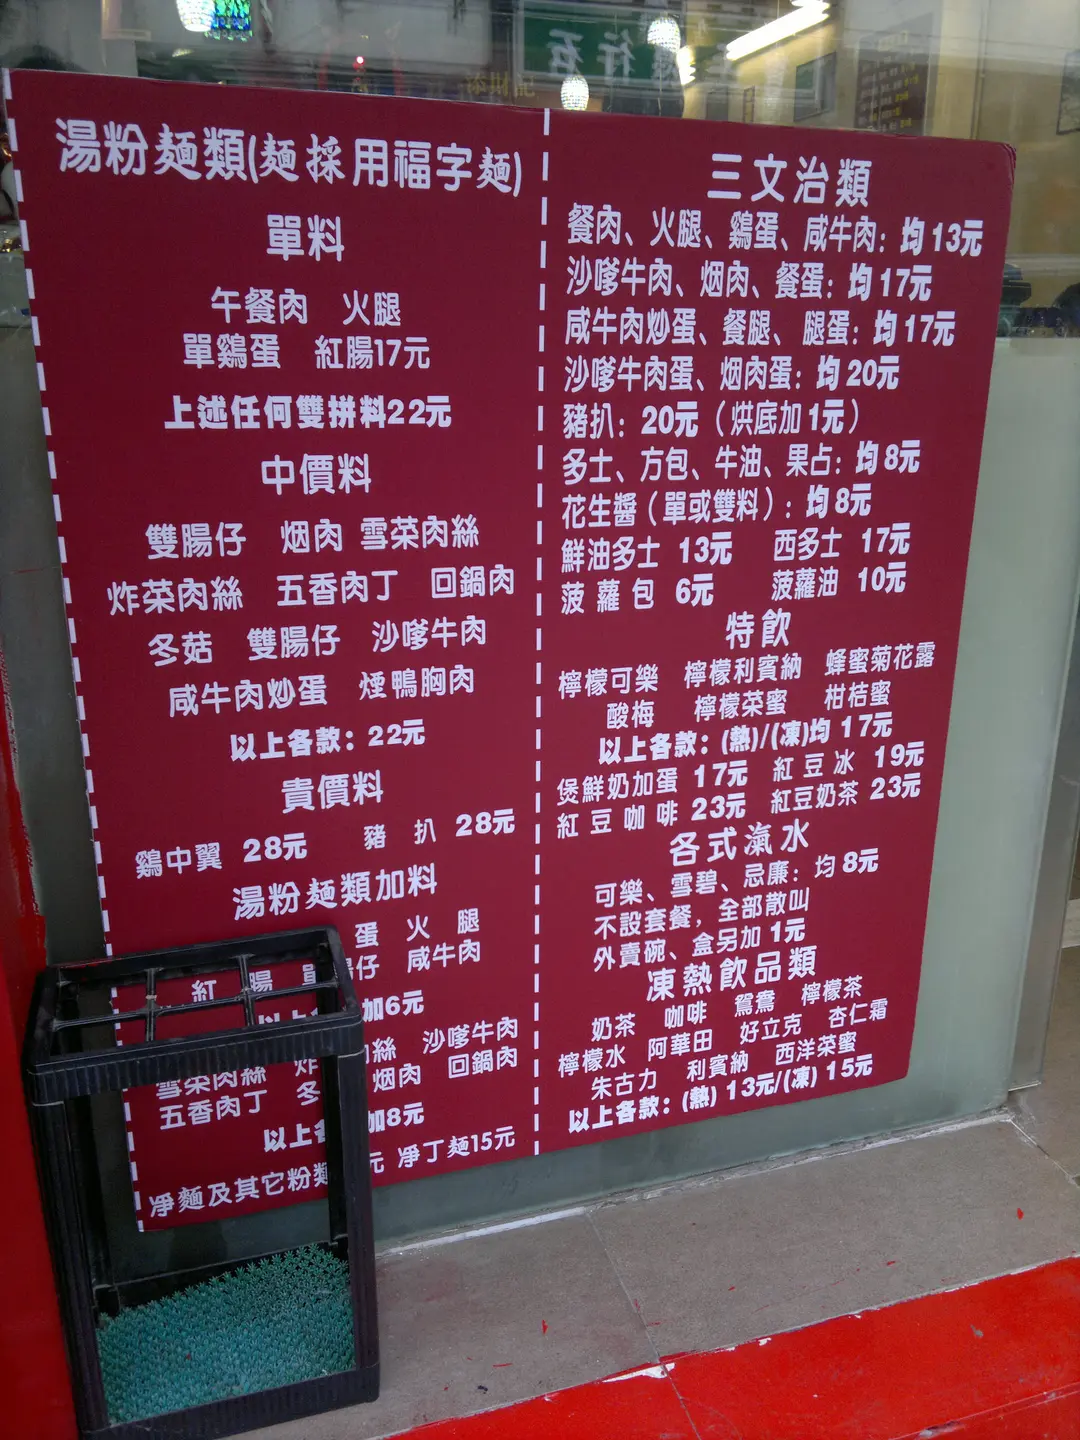 湯粉麵類(麵採用福字麵)
單料
午餐肉 火腿
單鷄蛋 紅腸17元
上述任何雙拼料22元
中價料
雙腸仔 烟肉 雪菜肉絲
炸菜肉絲 五香肉丁 回鍋肉
冬菇 雙腸仔 沙嗲牛肉
咸牛肉炒蛋 煙鴨胸肉
以上各款：22元
貴價料
鷄中翼 28元 豬扒 28元
湯粉麵類加料
蛋 火腿
紅腸 單 仔 咸牛肉
以上 加6元
炸 肉絲 沙嗲牛肉
雪菜肉絲 烟肉 回鍋肉
五香肉丁 冬
以上各 加8元
淨麵及其它粉類 元 淨丁麵15元
三文治類
餐肉、火腿、鷄蛋、咸牛肉：均13元
沙嗲牛肉、烟肉、餐蛋：均17元
咸牛肉炒蛋、餐腿、腿蛋：均17元
沙嗲牛肉蛋、烟肉蛋：均20元
豬扒：20元（烘底加1元）
多士、方包、牛油、果占：均8元
花生醬（單或雙料）：均8元
鮮油多士 13元 西多士 17元
菠蘿包 6元 菠蘿油 10元
特飲
檸檬可樂 檸檬利賓納 蜂蜜菊花露
酸梅 檸檬菜蜜 柑桔蜜
以上各款：(熱)/(凍)均 17元
煲鮮奶加蛋 17元 紅豆冰 19元
紅豆咖啡 23元 紅豆奶茶 23元
各式氣水
可樂、雪碧、忌廉：均8元
不設套餐，全部散叫
外賣碗、盒另加 1元
凍熱飲品類
奶茶 咖啡 鴛鴦 檸檬茶
檸檬水 阿華田 好立克 杏仁霜
朱古力 利賓納 西洋菜蜜
以上各款：(熱) 13元/(凍) 15元